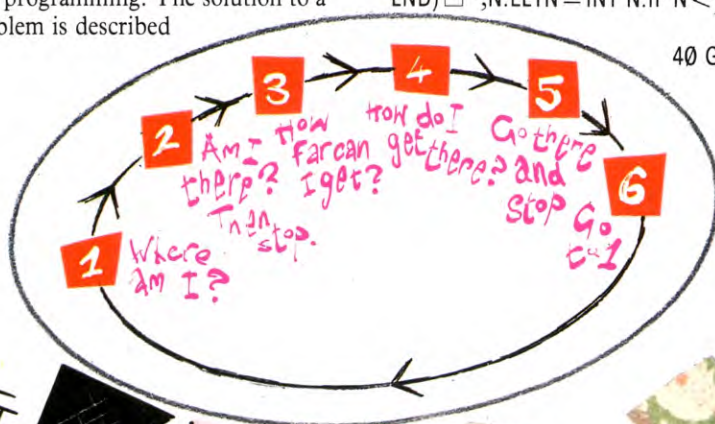 programming. The solution to a
blem is described
END) □ ";N:LET N = INT N:IF N<
40 G
1
Where
am I?
2
Am I
there?
Then
stop.
3
How
far can
I get?
4
How do I
get there?
5
Go there
and
stop
6
Go
to 1